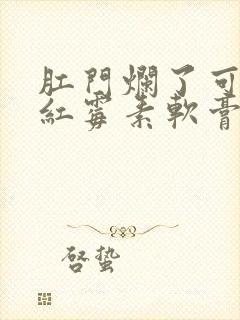 肛門爛了可
紅霉素軟膏
啓蟄